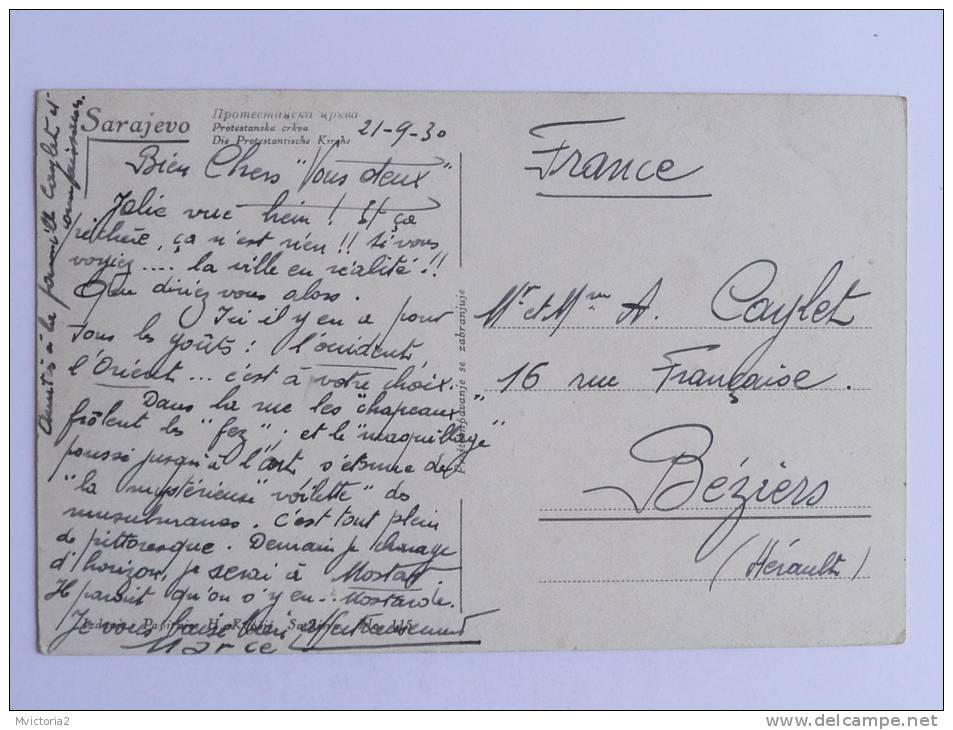 Sarajevo
Протестанска црква
Protestanska crkva
Die Protestantische Kirche
21-9-30
Bien Chers "Vous deux"
Jolie vue hein ! Et ça
ça n'est rien !! Si vous
voyiez .... la ville en réalité !!
Que diriez vous alors.
Ici il y en a pour
tous les goûts : l'occident,
l'Orient ... c'est à votre choix.
Dans la rue les "chapeaux"
frôlent les "fez" ; et le "maquillage"
poussé jusqu'à l'art s'étonne de
"la mystérieuse voilette" des
musulmanes. C'est tout plein
de pittoresque. Demain je change
d'horizon, je serai à Mostar
Il parait qu'on s'y en... Mostarde.
Je vous baise bien affectueusement
Marce
Amitiés à la famille Caylet et
connaissances.
Preštampavanje se zabranjuje
France
Mr et Mme A. Caylet
16 rue Française.
Béziers
(Hérault)
Sarajevo
115
Mvictoria2
delcampe.net